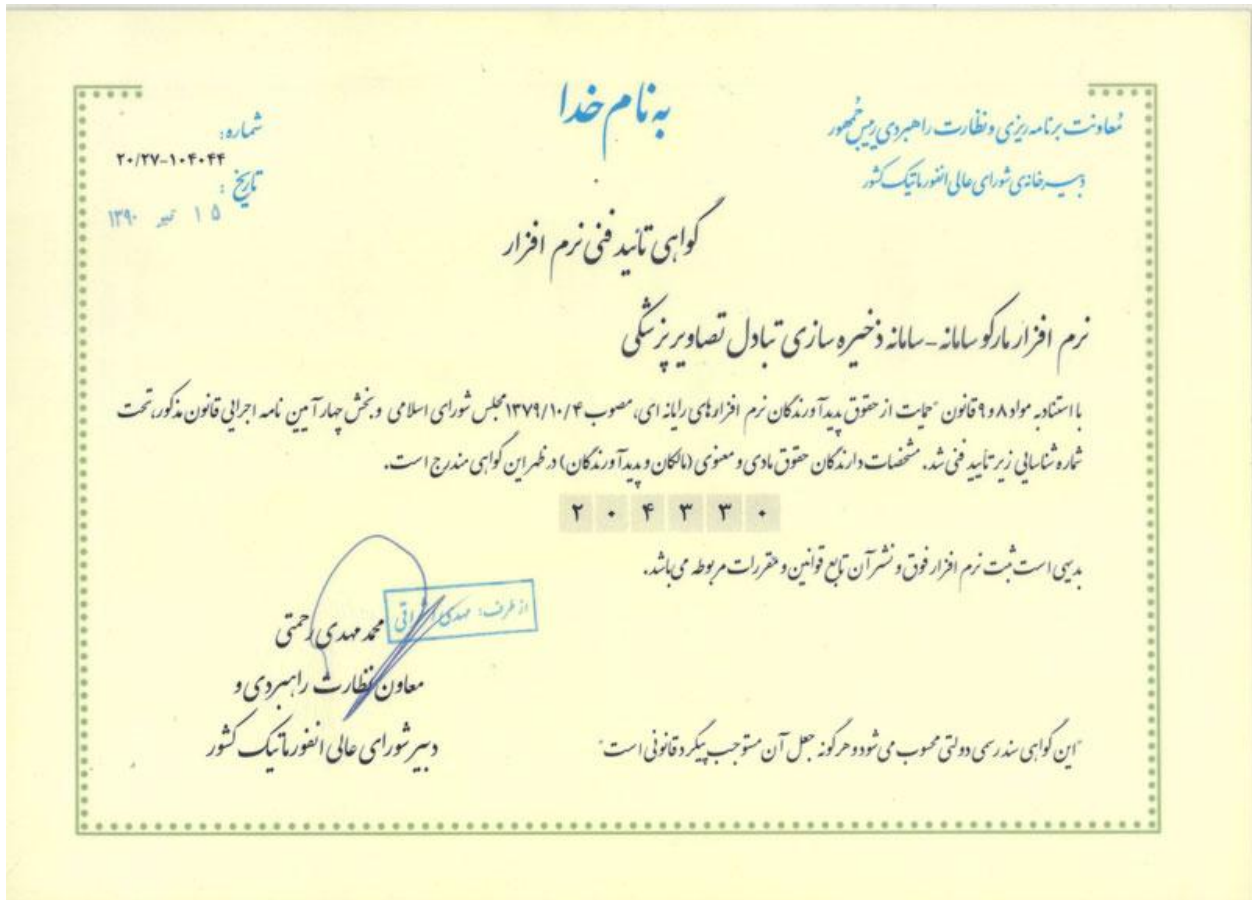 به نام خدا
معاونت برنامه ریزی و نظارت راهبردی رییس جمهور
دبیرخانه‌ی شورای عالی انفورماتیک کشور
شماره:
۲۰/۲۷-۱۰۴۰۴۴
تاریخ:
۱۵ تیر ۱۳۹۰
گواهی تائید فنی نرم افزار
نرم افزار مارکو سامانه - سامانه ذخیره سازی تبادل تصاویر پزشکی
با استناد به مواد ۸ و ۹ قانون "حمایت از حقوق پدیدآورندگان نرم افزارهای رایانه ای، مصوب ۱۳۷۹/۱۰/۴ مجلس شورای اسلامی و بخش چهار آیین نامه اجرایی قانون مذکور، تحت
شماره شناسایی زیر تأیید فنی شد. مشخصات دارندگان حقوق مادی و معنوی (مالکان و پدیدآورندگان) در ظهر این گواهی مندرج است.
۲ ۰ ۴ ۳ ۳ ۰
بدیهی است ثبت نرم افزار فوق و نشر آن تابع قوانین و مقررات مربوطه می باشد.
از طرف: مهدی
محمد مهدی رحمتی
معاون نظارت راهبردی و
دبیر شورای عالی انفورماتیک کشور
"این گواهی سند رسمی دولتی محسوب می شود و هرگونه جعل آن مستوجب پیگرد قانونی است"